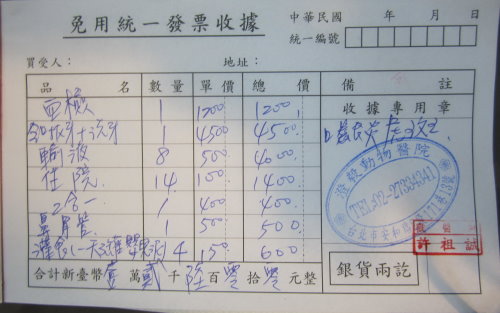 免用統一發票收據
中華民國 年 月 日
統一編號
買受人： 地址：
品名 數量 單價 總價 備註
血檢 1 1200 1200
拔牙+洗牙 1 4500 4500
輸液 8 500 4000
住院 14 100 1400
2合一 1 400 400
鼻胃管 1 500 500
灌食(一天 4 150 600
收據專用章
澄毅動物醫院
TEL:02-27
台北市安和路
許祖誠
合計新臺幣壹萬貳千陸百零拾零元整
銀貨兩訖